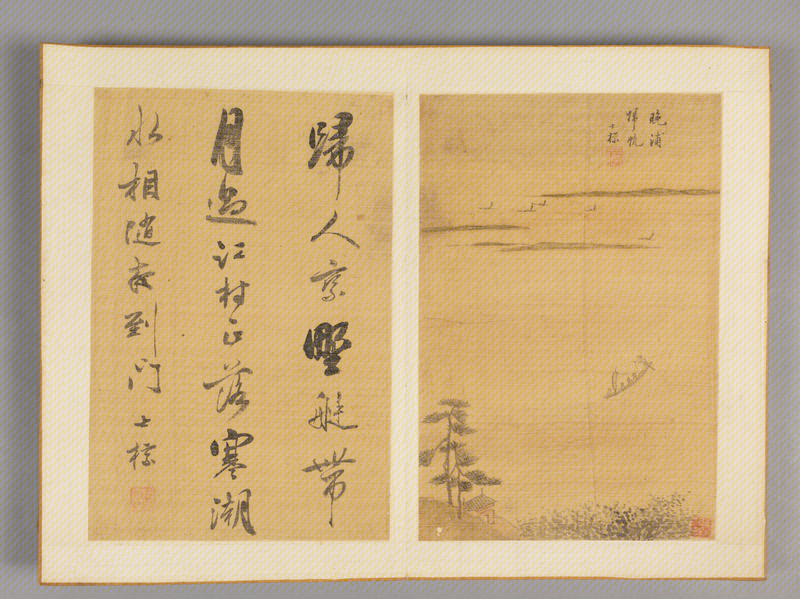 晚浦
歸帆
士標
歸人乘野艇帶
月過江村正落寒潮
水相隨夜到門 士標